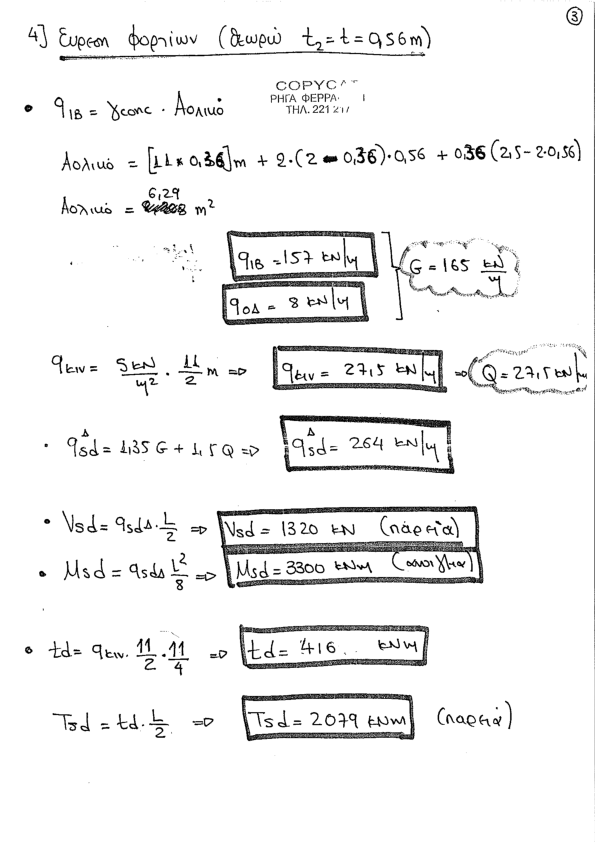 3
4] Ευρεση φορτίων (θεωρώ t₂=t=0,56m)
COPYCAT
ΡΗΓΑ ΦΕΡΡΑ
ΤΗΛ. 221 217
• qIB = γconc . Αολικό
Αολικό = [11 × 0,36]m + 2·(2 - 0,36)·0,56 + 0,36 (2,5-2·0,56)
6,29
Αολικό = m²
qIB = 157 kN/m
G = 165 kN/m
qOΔ = 8 kN/m
qκιν = 5kN/m² · 11/2 m => qκιν = 27,5 kN/m => Q = 27,5 kN/m
· qsdΔ = 1,35 G + 1,5 Q => qsdΔ = 264 kN/m
• Vsd = qsdΔ · L/2 => Vsd = 1320 kN (παρειά)
• Msd = qsdΔ L²/8 => Msd = 3300 kNm (άνοιγμα)
• td = qκιν · 11/2 · 11/4 => td = 416 kNm
Tsd = td · L/2 => Tsd = 2079 kNm (παρειά)